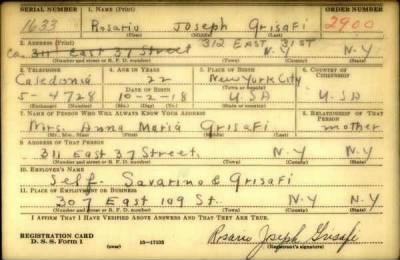 SERIAL NUMBER 1. NAME (Print) ORDER NUMBER
1633 Rosario Joseph Grisafi 2900
(First) (Middle) (Last)
2. ADDRESS (Print) 312 EAST 31ST
ca. 311 east 37 Street N.Y N.Y
(Number and street or R. F. D. number) (Town) (County) (State)
3. TELEPHONE 4. AGE IN YEARS 5. PLACE OF BIRTH 6. COUNTRY OF CITIZENSHIP
Caledonia 22 New York City
DATE OF BIRTH (Town or county)
5-4728 10-2-18 USA USA
(Exchange) (Number) (Mo.) (Day) (Yr.) (State or country)
7. NAME OF PERSON WHO WILL ALWAYS KNOW YOUR ADDRESS 8. RELATIONSHIP OF THAT PERSON
Mrs. Anna Maria Grisafi mother
(Mr., Mrs., Miss) (First) (Middle) (Last)
9. ADDRESS OF THAT PERSON
311 East 37 Street, N.Y N.Y
(Number and street or R. F. D. number) (Town) (County) (State)
10. EMPLOYER'S NAME
Self- Savarino & Grisafi
11. PLACE OF EMPLOYMENT OR BUSINESS
307 East 109 St. N.Y N.Y
(Number and street or R. F. D. number) (Town) (County) (State)
I AFFIRM THAT I HAVE VERIFIED ABOVE ANSWERS AND THAT THEY ARE TRUE.
REGISTRATION CARD Rosario Joseph Grisafi
D. S. S. Form 1 (over) 16—17105 (Registrant's signature)